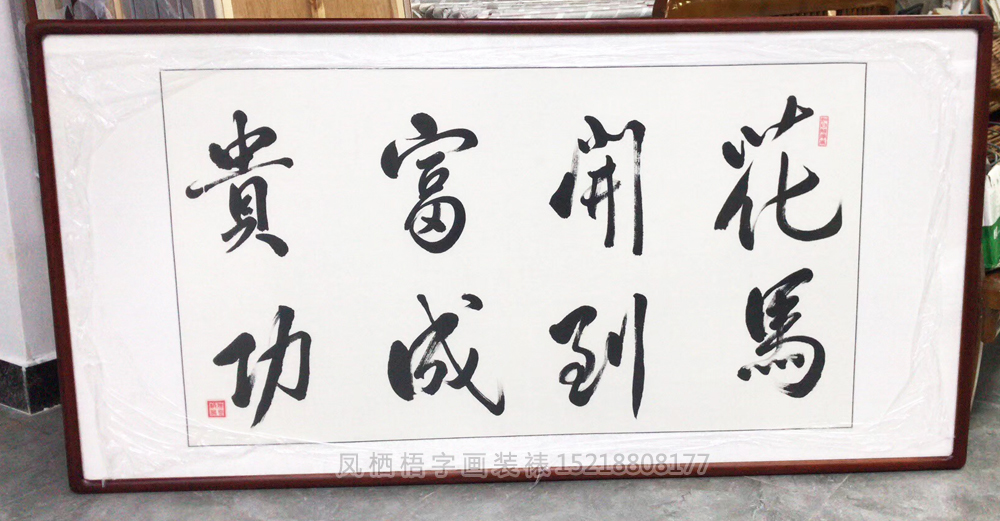 花開富貴
馬到成功
凤栖梧字画装裱15218808177